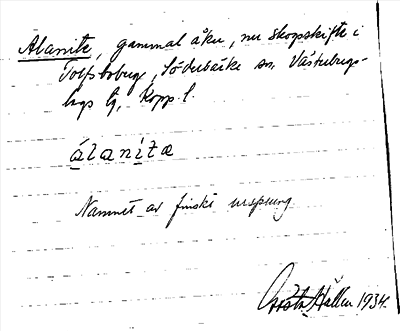 Alanite, gammal åker, nu skogsskifte i
Tolfsboberg, Söderbärke sn, Västerbergs-
lags tg, Kopp. l.
álanìtæ
Namnet av finskt ursprung
Gösta Hallén 1934.